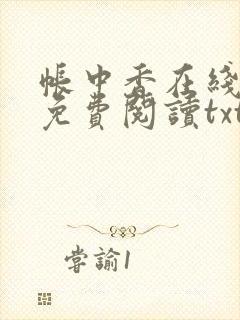 帳中香在綫
免費閱讀txt
嘗諭1